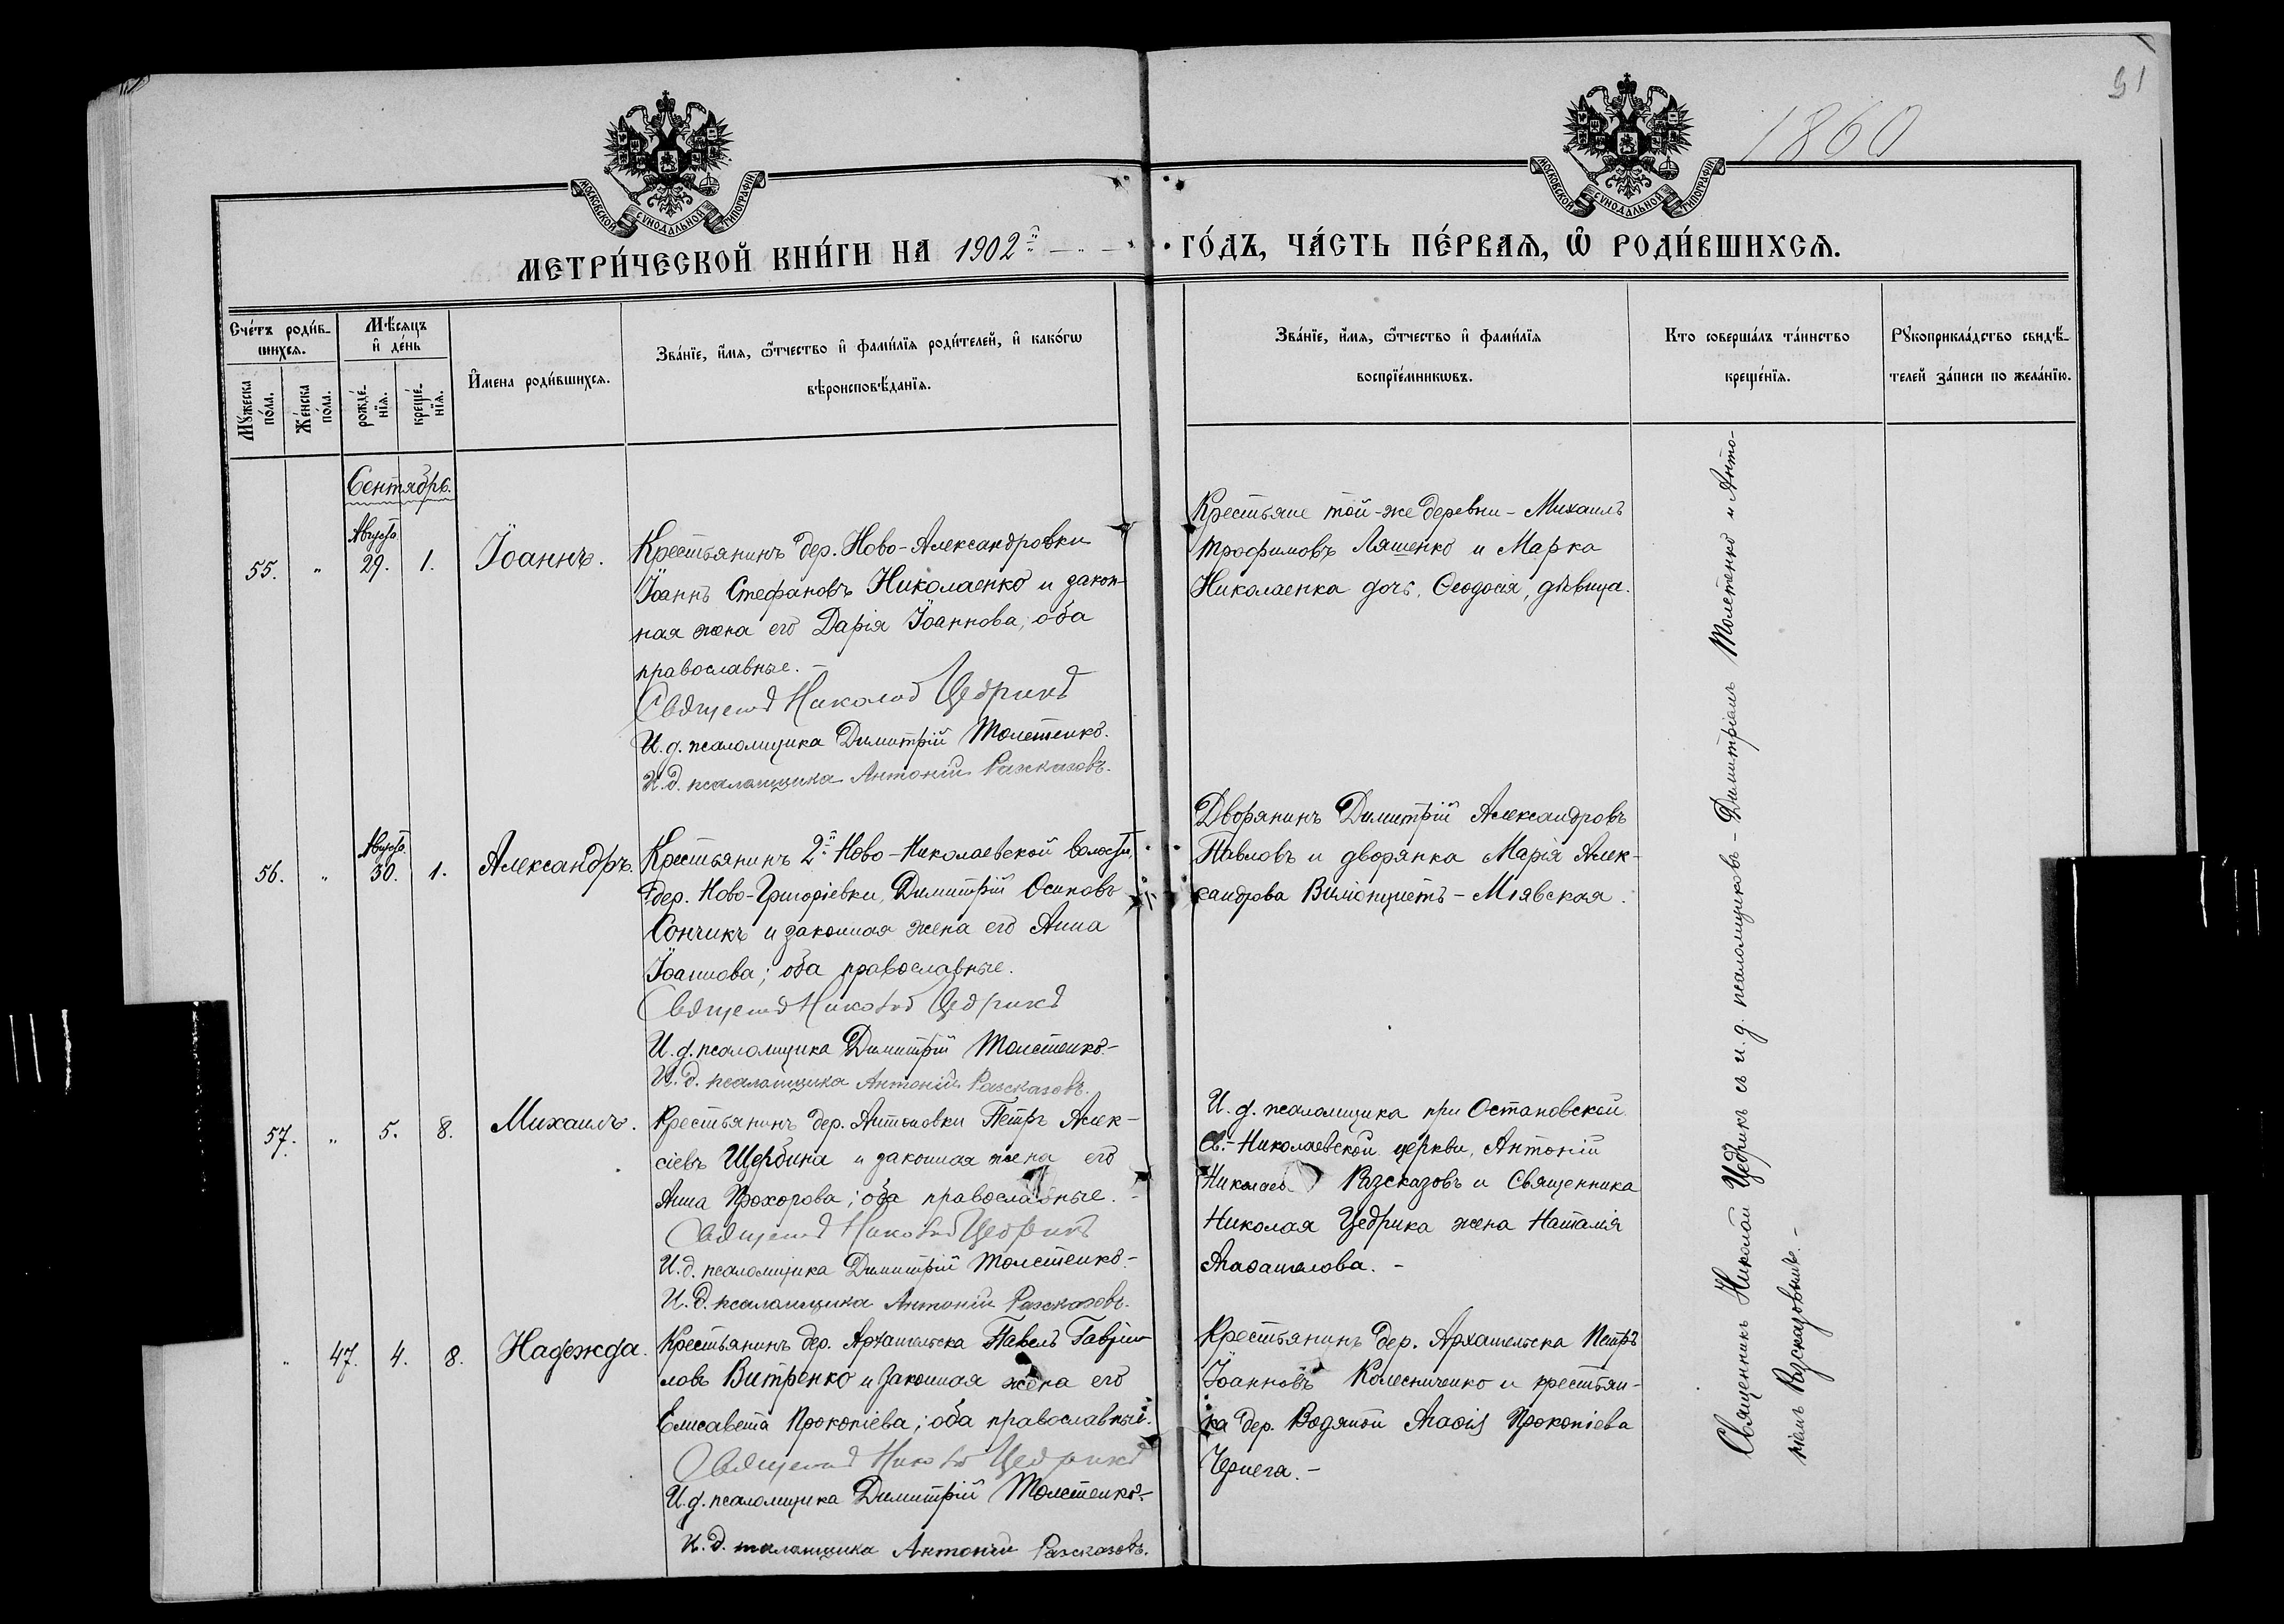 91
1860
МОСКОВСКОЙ СУНОДАЛЬНОЙ ТИПОГРАФІИ
МОСКОВСКОЙ СУНОДАЛЬНОЙ ТИПОГРАФІИ
МЕТРИ́ЧЕСКОЙ КНИ́ГИ НА 1902й ГО́ДЪ, ЧА́СТЬ ПЕ́РВАЯ, Ѽ РОДИ́ВШИХСЯ.
Сче́тъ роди́в-
шихся.
Мꙋ́жеска по́ла.
Же́нска по́ла.
Мѣ́сяцъ
и де́нь
рожде́-
нїя.
креще́-
нїя.
И҆мена роди́вшихся.
Зва́нїе, и҆́мя, ѻ҆́тчество и҆ фами́лїя роди́телей, и҆ како́гѡ
вѣроисповѣ́данїя.
Зва́нїе, и҆́мя, ѻ҆́тчество и҆ фами́лїя
воспрїе́мникѡвъ.
Кто соверша́лъ та́инство
креще́нїя.
Рꙋкоприкла́дство свидѣ́-
телей за́писи по жела́нїю.
Сентябрь.
55. " Августа 29. 1. Іоаннъ.
Крестьянинъ дер. Ново-Александровки
Іоаннъ Стефановъ Николаенко и закон-
ная жена его Дарія Іоаннова; оба
православные. –
Священникъ Николай Цедрикъ
И. д. псаломщика Димитрій Толстенко.
И. д. псаломщика Антоній Разсказовъ.
Крестьяне той-же деревни – Михаилъ
Трофимовъ Ляшенко и Марка
Николаенка дочь, Ѳеодосія, дѣвица.
56. " Августа 30. 1. Александръ.
Крестьянинъ 2й Ново-Николаевской волости,
дер. Ново-Григоріевки, Димитрій Осиповъ
Сончикъ и законная жена его Анна
Іоаннова; оба православные.
Священникъ Николай Цедрикъ
И. д. псаломщика Димитрій Толстенко. –
И. д. псаломщика Антоній Разсказовъ.
Дворянинъ Димитрій Александровъ
Павловъ и дворянка Марія Алек-
сандрова – Мявская.
57. " 5. 8. Михаилъ.
Крестьянинъ дер. Антоновки Петръ Алек-
сіевъ Щербина и законная жена его
Анна Прохорова; оба православные. –
Священникъ Николай Цедрикъ
И. д. псаломщика Димитрій Толстенко. –
И. д. псаломщика Антоній Разсказовъ.
И. д. псаломщика при Остановской
Св.-Николаевской церкви, Антоній
Николаевъ Разсказовъ и Священника
Николая Цедрика жена Наталія
. –
" 47. 4. 8. Надежда.
Крестьянинъ дер. Архангельска Павелъ Гаврии-
ловъ Витренко и законная жена его
Елисавета Прокопіева; оба православные.
Священникъ Николай Цедрикъ
И. д. псаломщика Димитрій Толстенко. –
И. д. псаломщика Антоній Разсказовъ.
Крестьянинъ дер. Архангельска Петръ
Іоанновъ Колесниченко и крестьян-
ка дер. Водяной Агафія Прокопіева
Чернега. –
Священникъ Николай Цедрикъ съ и. д. псаломщиковъ – Димитріемъ Толстенко и Анто-
ніемъ Разсказовымъ. –